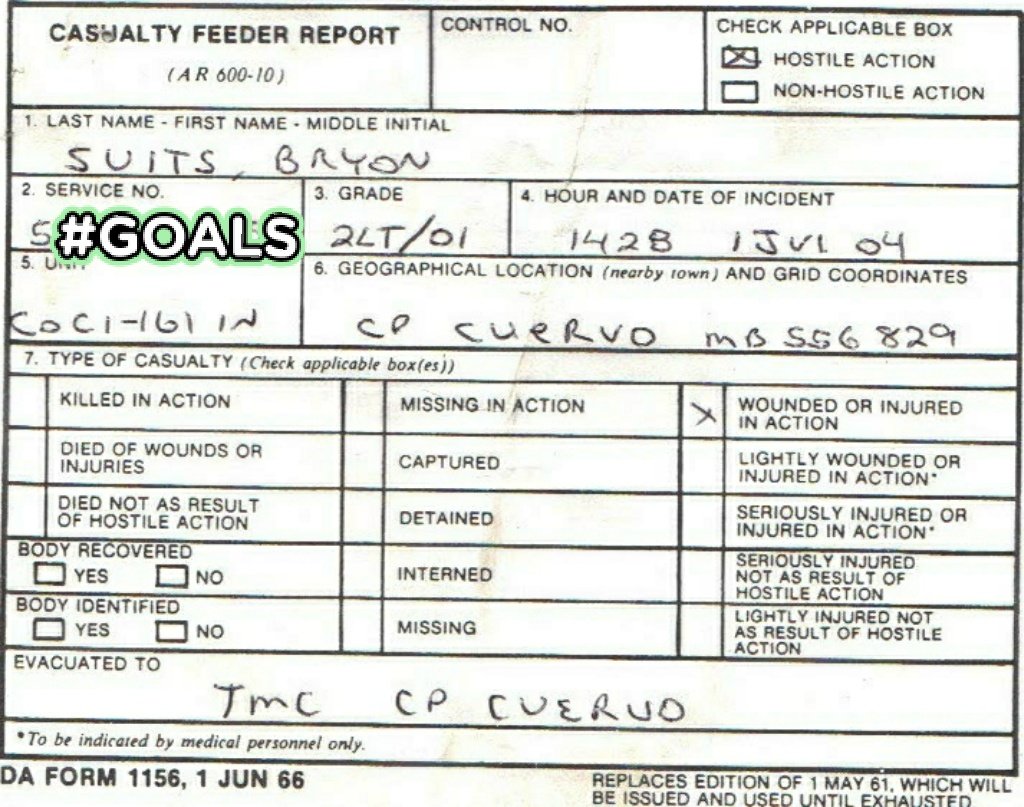 CASUALTY FEEDER REPORT
(AR 600-10)
CONTROL NO.
CHECK APPLICABLE BOX
HOSTILE ACTION
NON-HOSTILE ACTION
1. LAST NAME - FIRST NAME - MIDDLE INITIAL
SUITS, BRYON
2. SERVICE NO.
#GOALS
3. GRADE
2LT/01
4. HOUR AND DATE OF INCIDENT
1428 1 JUL 04
5. UNIT
CO C 1-161 IN
6. GEOGRAPHICAL LOCATION (nearby town) AND GRID COORDINATES
CP CUERVO MB 556 829
7. TYPE OF CASUALTY (Check applicable box(es))
KILLED IN ACTION
MISSING IN ACTION
X
WOUNDED OR INJURED
IN ACTION
DIED OF WOUNDS OR
INJURIES
CAPTURED
LIGHTLY WOUNDED OR
INJURED IN ACTION*
DIED NOT AS RESULT
OF HOSTILE ACTION
DETAINED
SERIOUSLY INJURED OR
INJURED IN ACTION*
BODY RECOVERED
YES NO
INTERNED
SERIOUSLY INJURED
NOT AS RESULT OF
HOSTILE ACTION
BODY IDENTIFIED
YES NO
MISSING
LIGHTLY INJURED NOT
AS RESULT OF HOSTILE
ACTION
EVACUATED TO
TMC CP CUERVO
*To be indicated by medical personnel only.
DA FORM 1156, 1 JUN 66
REPLACES EDITION OF 1 MAY 61, WHICH WILL
BE ISSUED AND USED UNTIL EXHAUSTED